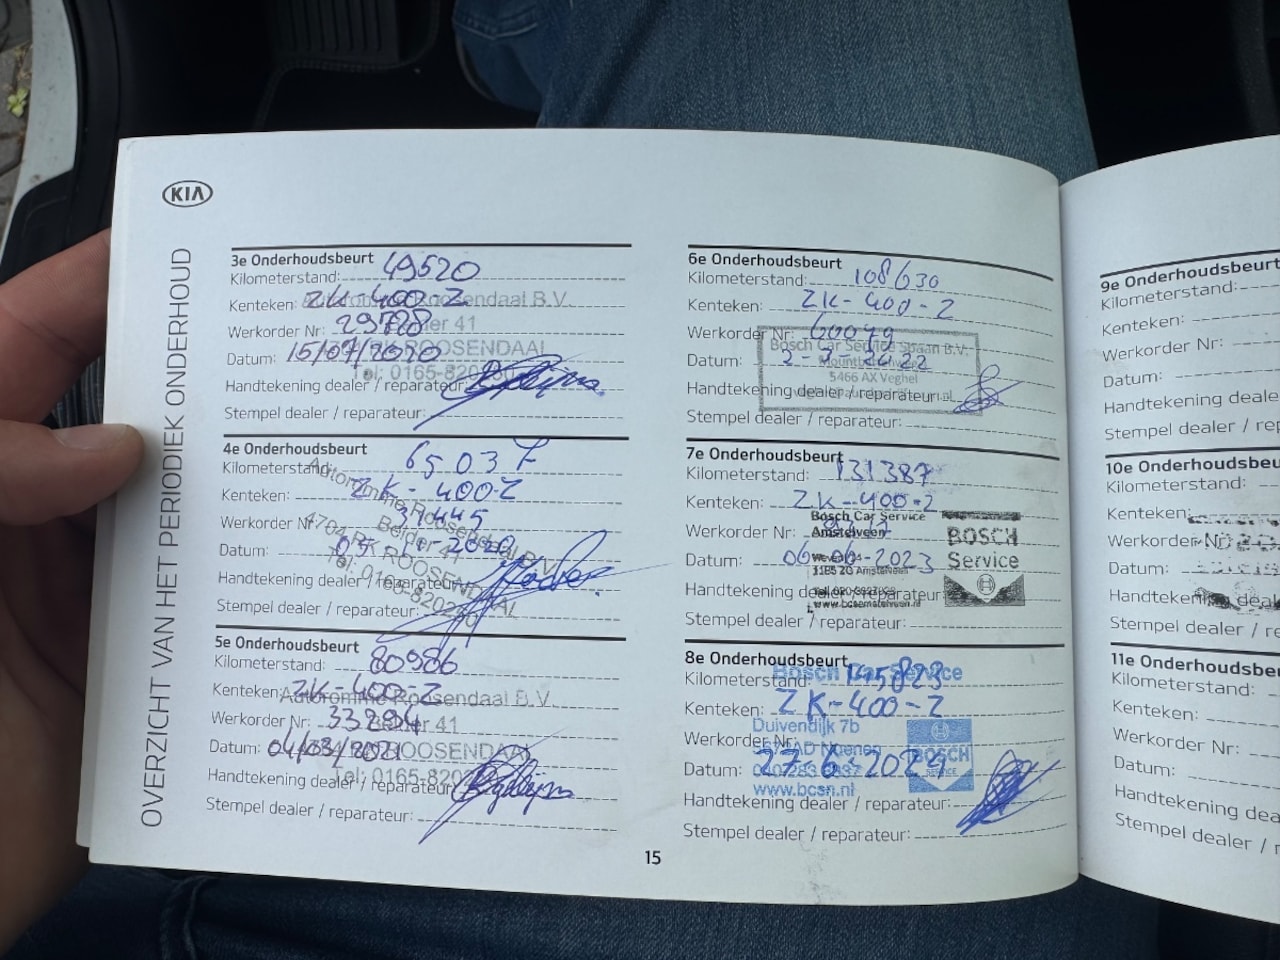 KIA
OVERZICHT VAN HET PERIODIEK ONDERHOUD
3e Onderhoudsbeurt
Kilometerstand: 49520
Kenteken: ZK-400-Z
Autoromme Roosendaal B.V.
Werkorder Nr: 29788
Belder 41
Datum: 15/07/2020
ROOSENDAAL
Tel: 0165-820
Handtekening dealer / reparateur:
Stempel dealer / reparateur:
4e Onderhoudsbeurt
Kilometerstand: 65037
Kenteken: ZK-400-Z
Autoromme Roosendaal B.V.
Werkorder Nr: 31445
Belder 41
Datum: 2020
4704 RK ROOSENDAAL
Tel: 0165-820
Handtekening dealer / reparateur:
Stempel dealer / reparateur:
5e Onderhoudsbeurt
Kilometerstand: 80986
Kenteken: ZK-400-Z
Autoromme Roosendaal B.V.
Werkorder Nr: 33294
Belder 41
Datum: 04/03/2021
ROOSENDAAL
Tel: 0165-820
Handtekening dealer / reparateur:
Stempel dealer / reparateur:
6e Onderhoudsbeurt
Kilometerstand: 108630
Kenteken: ZK-400-Z
Werkorder Nr: 60049
Bosch Car Service Spaan B.V.
Datum:
5466 AX Veghel
Handtekening dealer / reparateur:
Stempel dealer / reparateur:
7e Onderhoudsbeurt
Kilometerstand: 131387
Kenteken: ZK-400-Z
Bosch Car Service
Amstelveen
BOSCH
Service
Werkorder Nr:
Datum: 06-06-2023
1185 ZG Amstelveen
www.bcsamstelveen.nl
Handtekening dealer / reparateur:
Stempel dealer / reparateur:
8e Onderhoudsbeurt
Bosch Car Service
Kilometerstand: 145823
Kenteken: ZK-400-Z
Duivendijk 7b
Werkorder Nr:
AD Nuenen
BOSCH
SERVICE
Datum: 27-6-2024
www.bcsn.nl
Handtekening dealer / reparateur:
Stempel dealer / reparateur:
15
9e Onderhoudsbeurt
Kilometerstand:
Kenteken:
Werkorder Nr:
Datum:
Handtekening deale
Stempel dealer / rep
10e Onderhoudsbeu
Kilometerstand:
Kenteken:
Werkorder
Datum:
Handtekening deal
Stempel dealer / re
11e Onderhoudsbe
Kilometerstand:
Kenteken:
Werkorder Nr:
Datum:
Handtekening dea
Stempel dealer / r